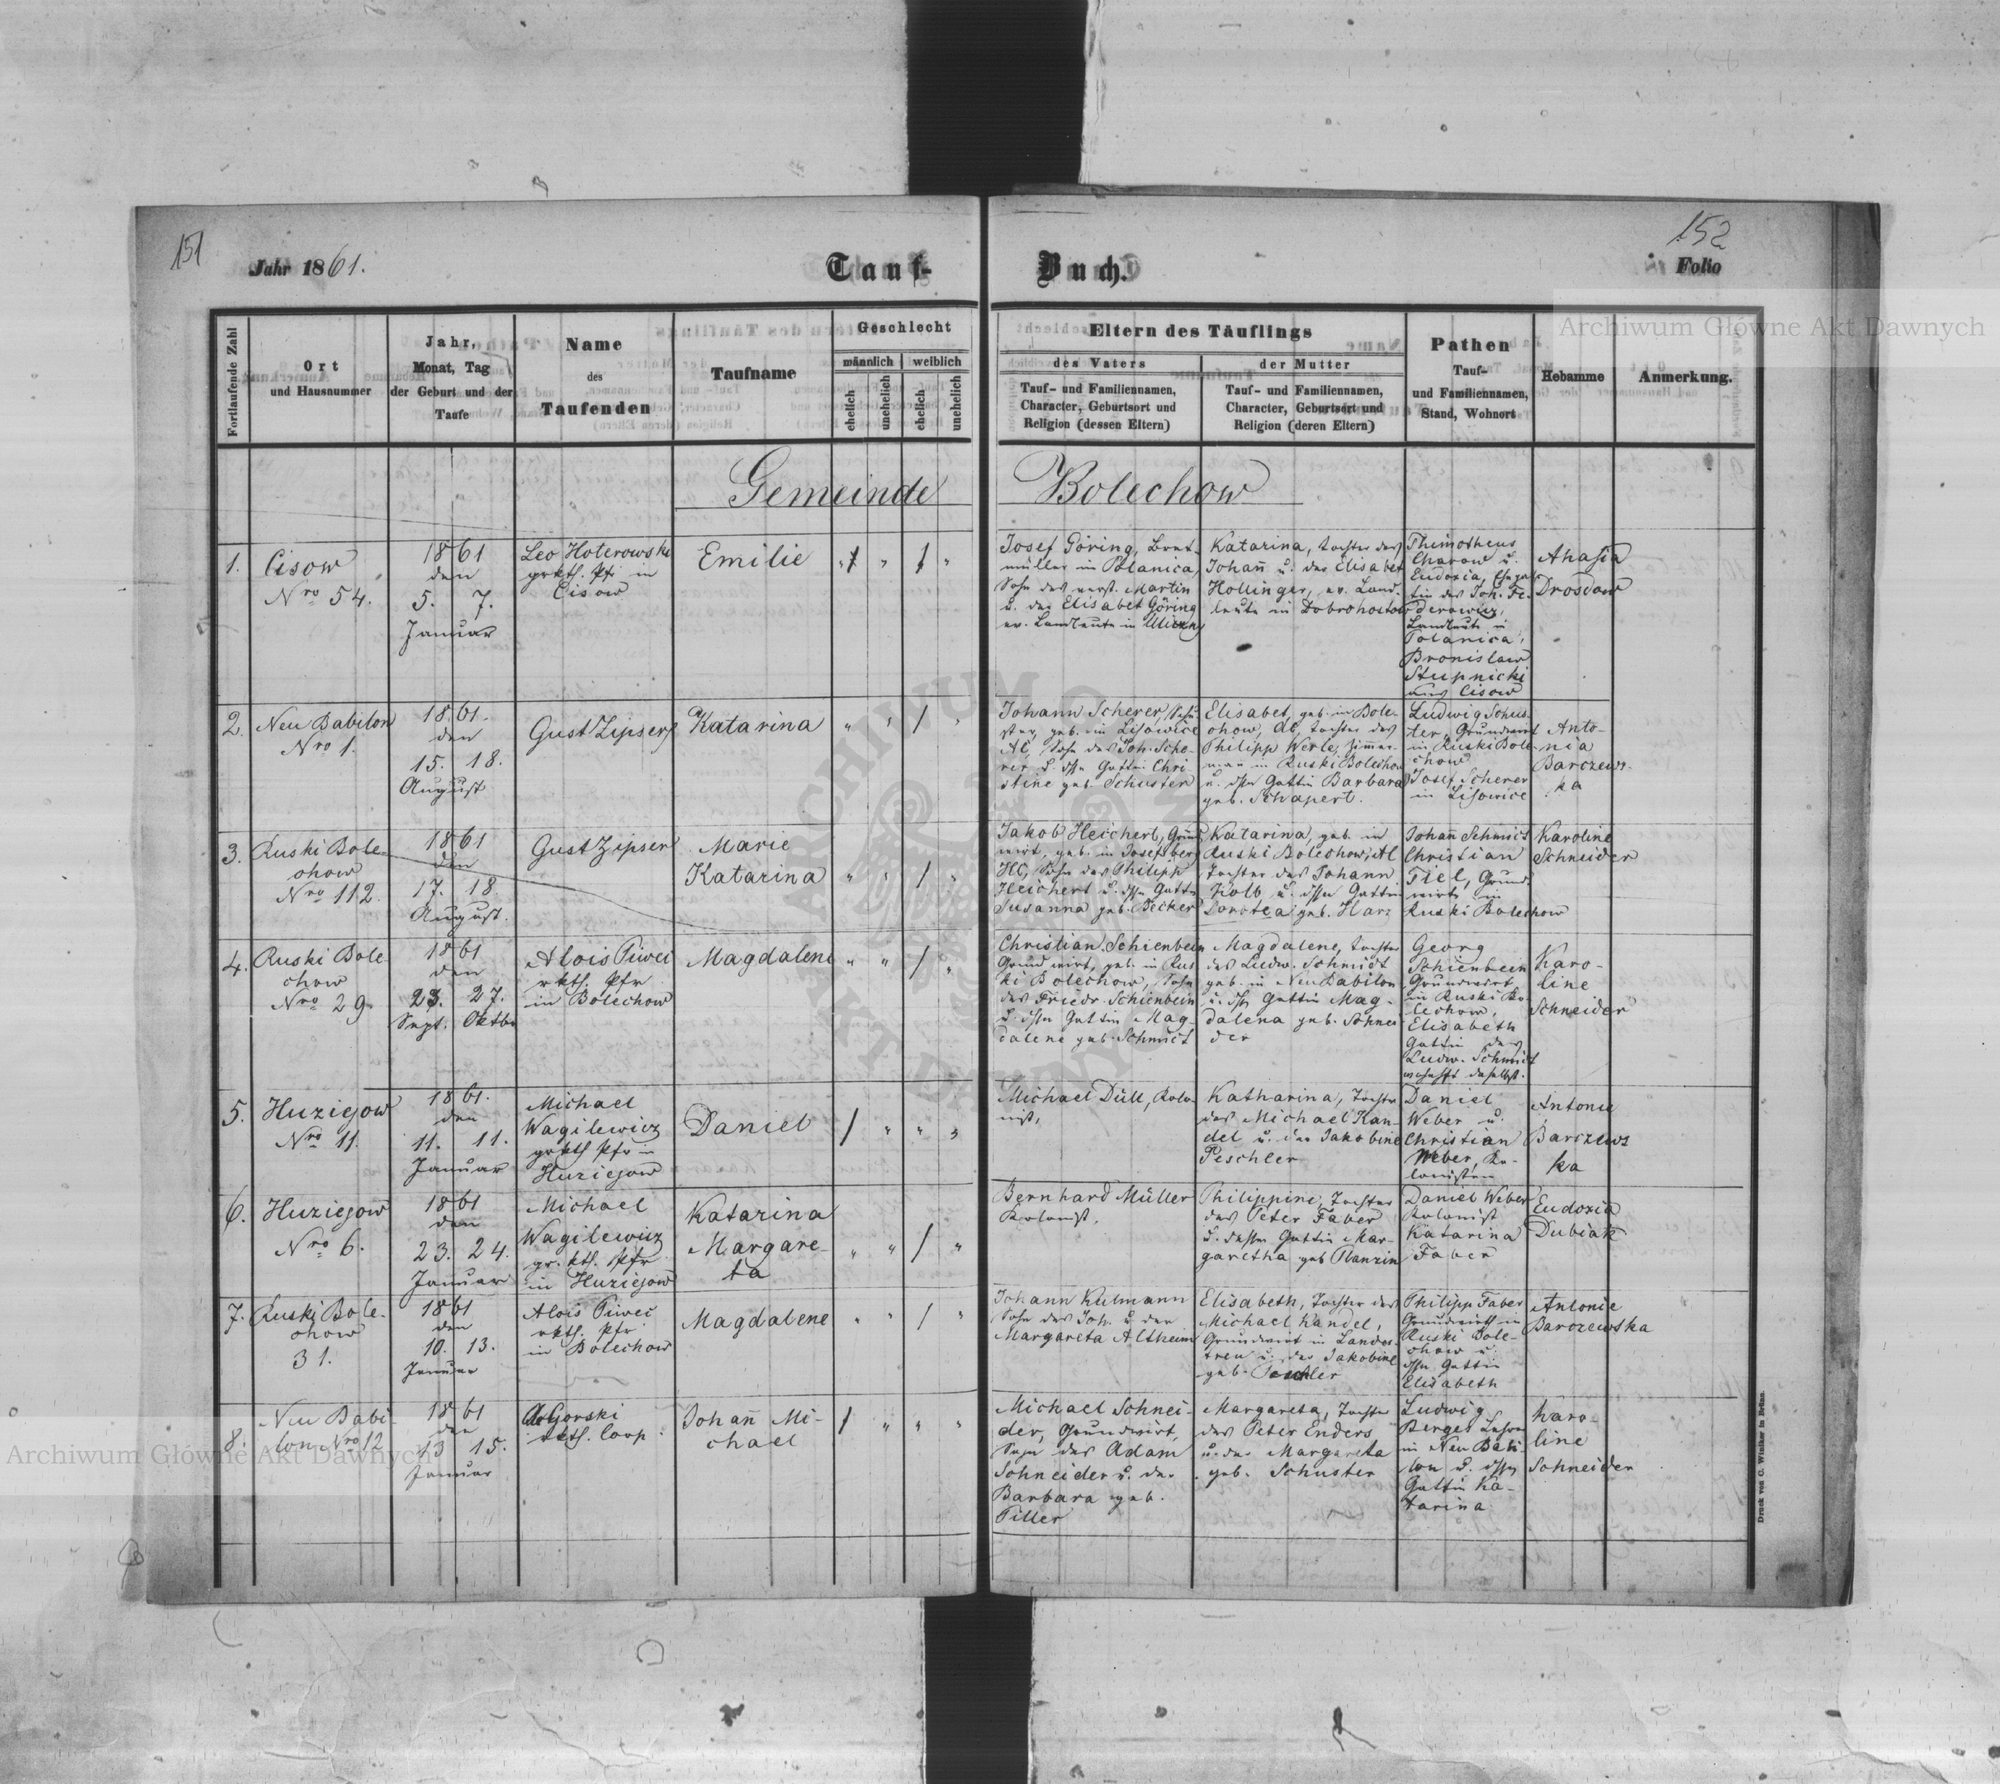 151
152
Jahr 1861.
Tauf-
Buch.
Folio
Archiwum Główne Akt Dawnych
Fortlaufende Zahl
Ort
und Hausnummer
Jahr,
Monat, Tag
der Geburt und der
Taufe
Name
des
Taufenden
Taufname
Geschlecht
männlich
weiblich
ehelich
unehelich
ehelich
unehelich
Eltern des Täuflings
des Vaters
Tauf- und Familiennamen,
Character, Geburtsort und
Religion (dessen Eltern)
der Mutter
Tauf- und Familiennamen,
Character, Geburtsort und
Religion (deren Eltern)
Pathen
Tauf-
und Familiennamen,
Stand, Wohnort
Hebamme
Anmerkung.
Gemeinde Bolechow
1.
Cisow
Nro 54.
1861
den
5. 7.
Januar
Leo Hoterowski
grkth. Pfr in
Cisow
Emilie
Josef Göring, Bret-
müller in Polanica,
Sohn des verst. Martin
u. der Elisabet Göring
ev. Landleute in Uliczny
Katarina, Tochter des
Johann u. der Elisabet
Hollinger, ev. Land-
leute in Dobrohostow
Thimotheus
Charow u.
Eudoxia,
tin des Joh. Fe-
derowicz,
Landleute in
Polanica,
Bronislaw
Stupnicki
aus Cisow
Anasia
Drosdow
2.
Neu Babilon
Nro 1.
1861.
den
15. 18.
August
Gust Zipser
Katarina
Johann Scherer, Schu-
ster, geb. in Lisowice
AC, Sohn des Joh. Sche-
rer u. dssn Gattin Chri-
stine geb. Schuster
Elisabet, geb. in Bole-
chow, AC, Tochter des
Philipp Werle, Zimer-
man in Ruski Bolechow
u. dssn Gattin Barbara
geb. Schapert.
Ludwig Schus-
ter, Grundwirt
in Ruski Bole-
chow
Josef Scherer
in Lisowice
Anto-
nia
Barczews-
ka
3.
Ruski Bole-
chow
Nro 112.
1861
den
17. 18
August.
Gust Zipser
Marie
Katarina
Jakob Heichert, Grund
wirt, geb. in Josefsberg
HC, Sohn des Philipp
Heichert u. dssn Gattin
Susanna geb. Becker
Katarina, geb. in
Ruski Bolechow, AC
Tochter des Johann
Kolb u. dssn Gattin
Dorotea geb. Harz
Johan Schmidt
Christian
Tiel, Grund-
wirte in
Ruski Bolechow
Karoline
Schneider
4.
Ruski Bole
chow
Nro 29.
1861
den
23. 27.
Sept. Oktbr
Alois Piwei
rkth. Pfr
in Bolechow
Magdalene
Christian Schienbein
Grundwirt, geb. in Rus
ki Bolechow, Sohn
des Friedr. Schienbein
u. dssn Gattin Mag-
dalene geb. Schmidt
Magdalene, Tochter
des Ludw. Schmidt
geb. in Neu Babilon
u. dssn Gattin Mag-
dalena geb. Schnei-
der
Georg
Schienbein
Grundwirt
in Ruski Bo-
lechow,
Elisabeth
Gattin des
Ludw. Schmidt
wohnhft daselbst.
Karo-
line
Schneider
5.
Huziejow
Nro 11.
1861.
den
11. 11.
Januar
Michael
Wagilewicz
grkth Pfr in
Huziejow
Daniel
Michael Düll, Kolo-
nist,
Katharina, Tochter
des Michael Kan-
del u. der Jakobine
Peschler
Daniel
Weber u.
Christian
Weber, Ko-
lonisten
Antonie
Barczews
ka
6.
Huziejow
Nro 6.
1861
den
23. 24.
Januar
Michael
Wagilewicz
gr. kth. Pfr
in Huziejow
Katarina
Margare-
ta
Bernhard Müller
Kolonist,
Philippine, Tochter
des Peter Faber
u. dessen Gattin Mar-
garetha geb
Daniel Weber
Kolonist
Katarina
Faber
Eudoxia
Dubiak
7.
Ruski Bole-
chow
31.
1861
den
10. 13.
Januar
Alois Piwei
rkth. Pfr
in Bolechow
Magdalene
Johann Kulmann
Sohn des Joh. u. der
Margareta Altheim
Elisabeth, Tochter des
Michael Kandel,
Grundwirt in Landes-
treu u. der Jakobine
geb. Peschler
Philipp Faber
Grundwirth in
Ruski Bole-
chow u.
dssn Gattin
Elisabeth
Antonie
Barczewska
8.
Neu Babi-
lon Nro 12
1861
den
13 15.
Januar
Gorski
rkth. Coop.
Johan Mi-
chael
Michael Schnei-
der, Grundwirt,
Sohn des Adam
Schneider u. der
Barbara geb.
Tiller
Margareta, Tochter
des Peter Enders
u. der Margareta
geb. Schuster
Ludwig
Berges Lehrer
in Neu Babi
lon u. dssn
Gattin Ka-
tarina
Karo-
line
Schneider
Archiwum Główne Akt Dawnych
Druck von C. Winiker in Brünn.